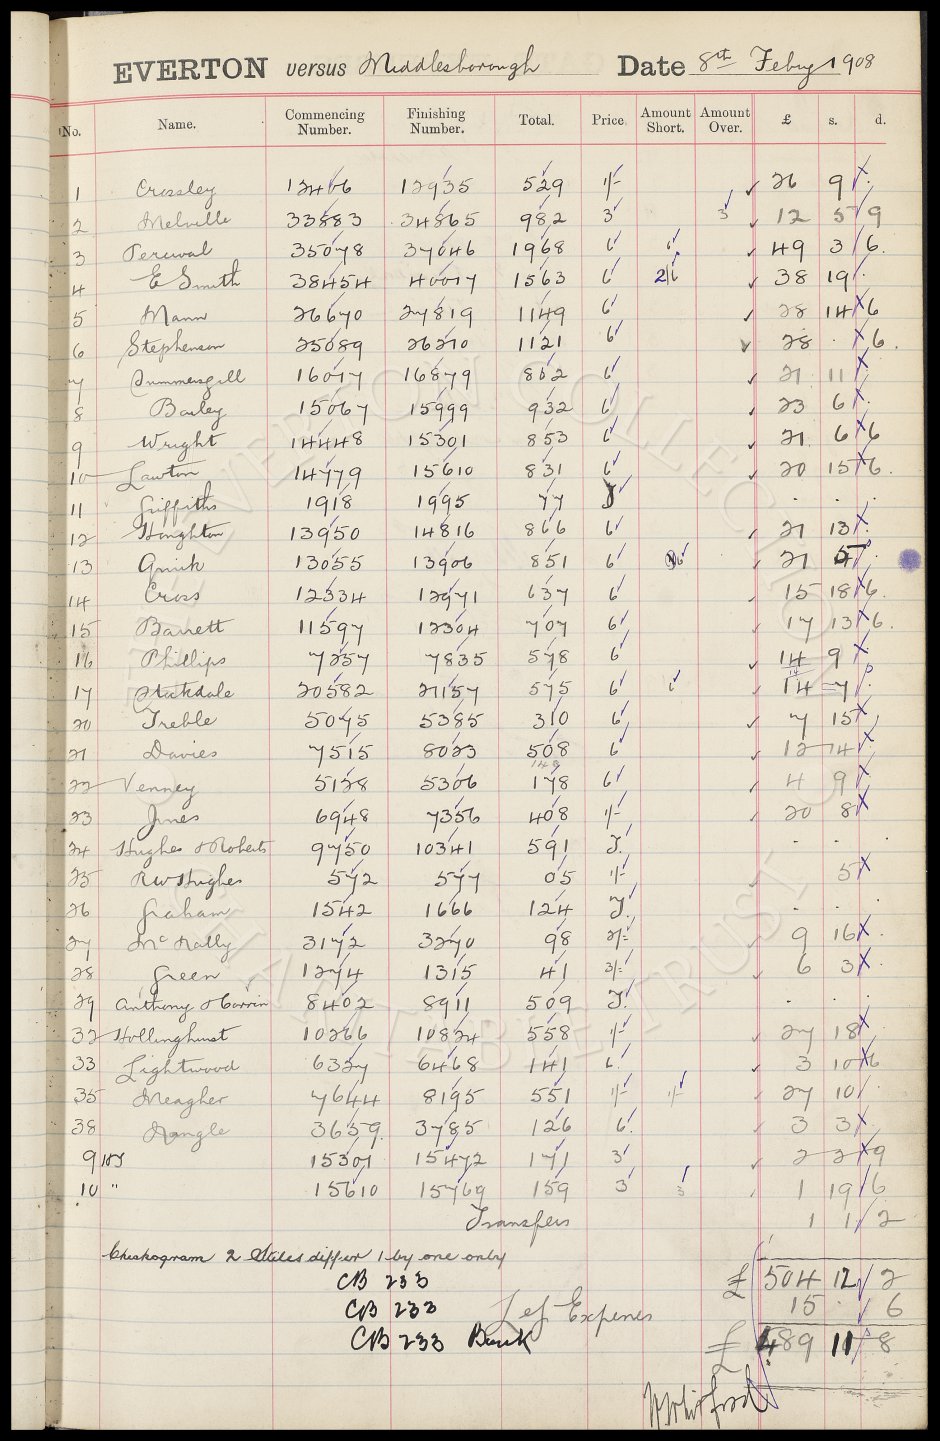 EVERTON versus Middlesborough Date 8th Feby 1908
No. Name. Commencing Number. Finishing Number. Total. Price Amount Short. Amount Over. £ s. d.
1 Crossley 12406 12935 529 1/- 26 9 .
2 Melville 33883 34865 982 3 3 12 5 9
3 Percival 35078 37046 1968 6 6 49 3 6
4 E Smith 38454 40017 1563 6 2/6 38 19 .
5 Mann 26670 27819 1149 6 28 14 6
6 Stephenson 25089 26210 1121 6 28 . 6
7 Summersgill 16017 16879 862 6 21 11 .
8 Bailey 15067 15999 932 6 23 6 .
9 Wright 14448 15301 853 6 21 6 6
10 Lawton 14779 15610 831 6 20 15 6
11 Griffiths 1918 1995 77 T . . .
12 Houghton 13950 14816 866 6 21 13 .
13 Quirk 13055 13906 851 6 21 5 .
14 Cross 12334 12971 637 6 15 18 6
15 Barrett 11597 12304 707 6 17 13 6
16 Phillips 7257 7835 578 6 14 9
17 Stockdale 20582 21157 575 6 6 14 7 .
20 Treble 5075 5385 310 6 7 15
21 Davies 7515 8023 508 6 12 14 .
22 Venney 5128 5306 178 6 4 9
23 Jones 6948 7356 408 1/- 20 8
24 Hughes & Roberts 9750 10341 591 T. . . .
25 RW Hughes 572 577 05 1/- 5
26 Graham 1542 1666 124 T. . . .
27 McNally 3172 3270 98 2/= 9 16 .
28 Green 1274 1315 41 3/= 6 3 .
29 Anthony & Corrin 8402 8911 509 T. . . .
32 Hollinghurst 10266 10824 558 1/- 27 18
33 Lightwood 6327 6468 141 6 3 10 6
35 Meagher 7644 8195 551 1/- 1/- 27 10 .
38 Nangle 3659 3785 126 6 3 3 .
9 15301 15472 171 3 2 2 9
10 " 15610 15769 159 3 3 1 19 6
Transfers 1 1 2
Checkogram 2 Stiles differ 1 by one only
CB 233 £ 504 12 2
CB 233 Less Expenses 15 . 6
CB 233 Bank £ 489 11 8
EVERTON COLLECTION
CHARITABLE TRUST